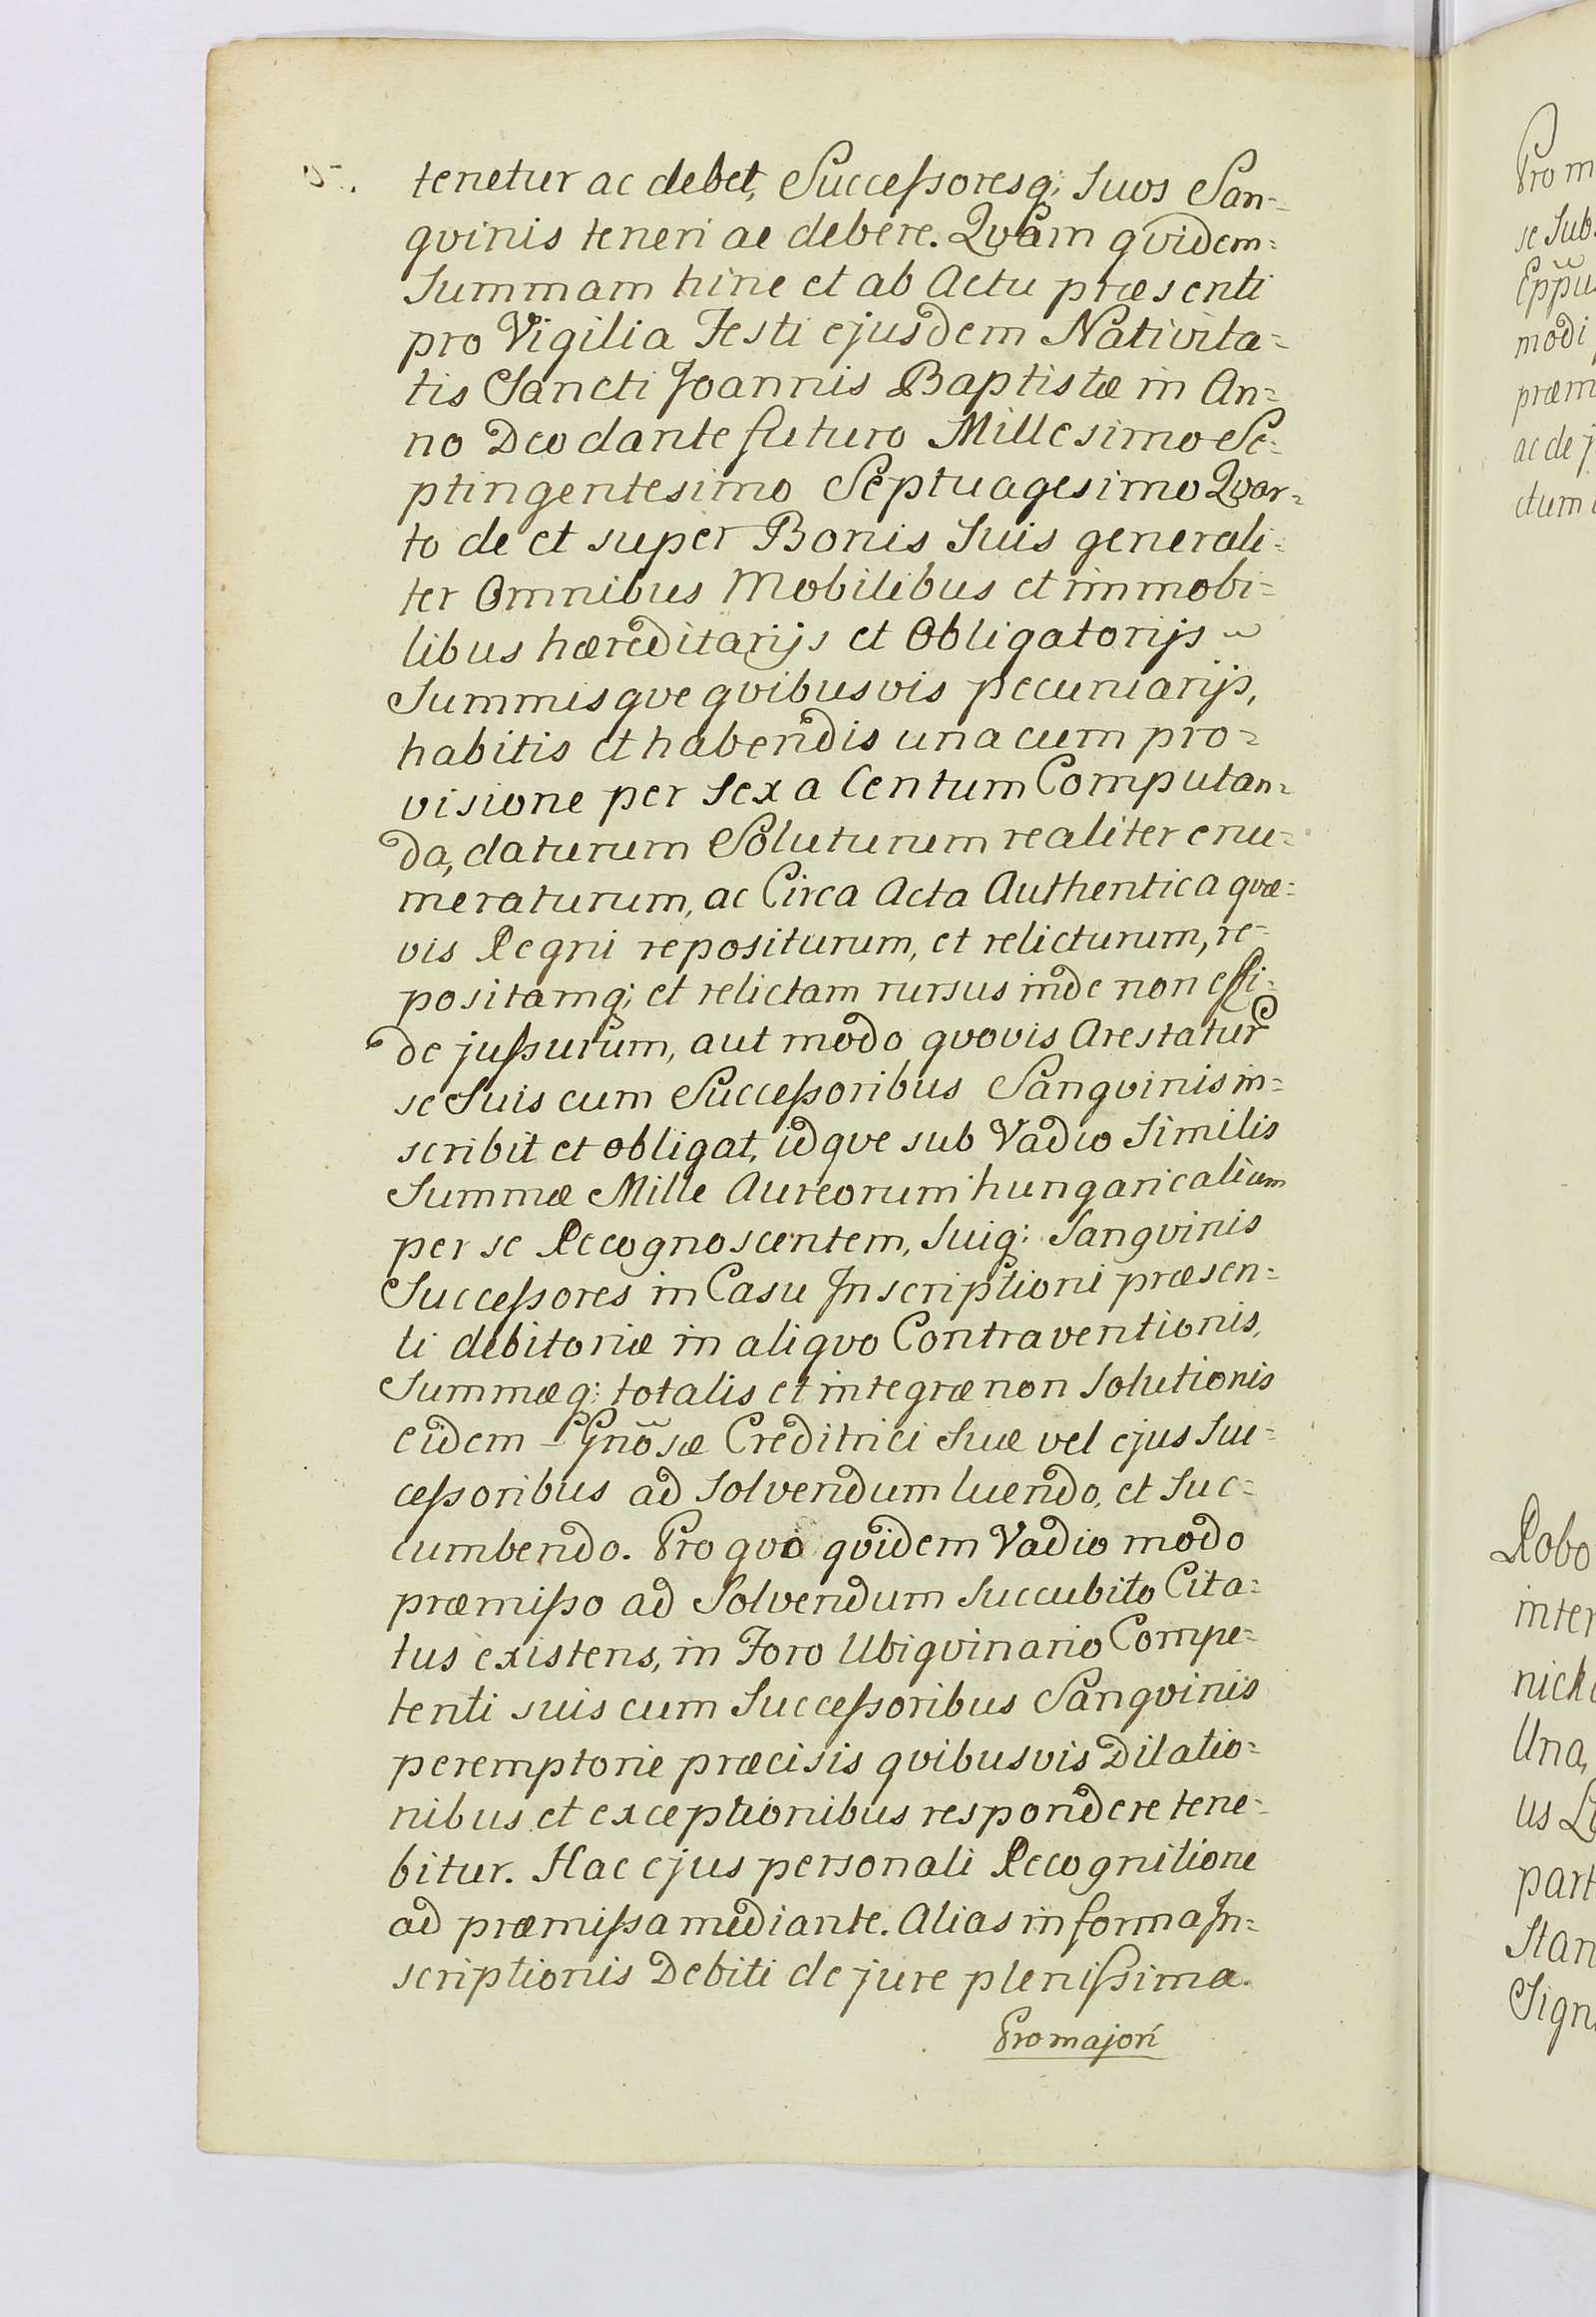 tenetur ac debet, Successoresq; Suos San=
gvinis teneri ac debere. Qvam qvidem=
Summam hinc et ab Actu præsenti
pro Vigilia Festi ejusdem Nativita=
tis Sancti Joannis Baptistæ in An=
no Deo dante futuro Millesimo Se=
ptingentesimo Septuagesimo Qvar=
to de et super Bonis Suis generali=
ter Omnibus Mobilibus et immobi=
libus hæreditarijs et Obligatorijs
Summisqve qvibusvis pecuniarijs,
habitis et habendis una cum pro=
visione per Sex a Centum Computan=
da, daturum Soluturum realiter enu=
meraturum, ac Circa Acta Authentica qvæ=
vis Regni repositurum, et relicturum, re=
positamq; et relictam rursus inde non effi=
de jussurum, aut modo qvovis Arestatur
se Suis cum Successoribus Sangvinis in=
scribit et obligat, idqve sub Vadio Similis
Summæ Mille Aureorum hungaricalium
per se Recognoscentem, Suiq: Sangvinis
Successores in Casu Inscriptioni præsen=
ti debitoriæ in aliqvo Contraventionis,
Summæq: totalis et integræ non Solutionis
eidem - Gnõsæ Creditrici Suæ vel ejus Suc=
cessoribus ad Solvendum luendo, et Suc=
cumbendo. Pro qvo qvidem Vadio modo
præmisso ad Solvendum Succubito Cita=
tus existens, in Foro Ubiqvinario Compe=
tenti suis cum Successoribus Sangvinis
peremptorie præcisis qvibusvis Dilatio=
nibus et exceptionibus respondere tene=
bitur. Hac ejus personali Recognitione
ad præmissa mediante. Alias in forma In=
scriptionis Debiti de jure plenissima.
Pro majori
Pro m
se Sub
Eppũ
modi
præm
ac de j
ctum
Robo
inter
nick
Una,
us L
part
Stan
Sign